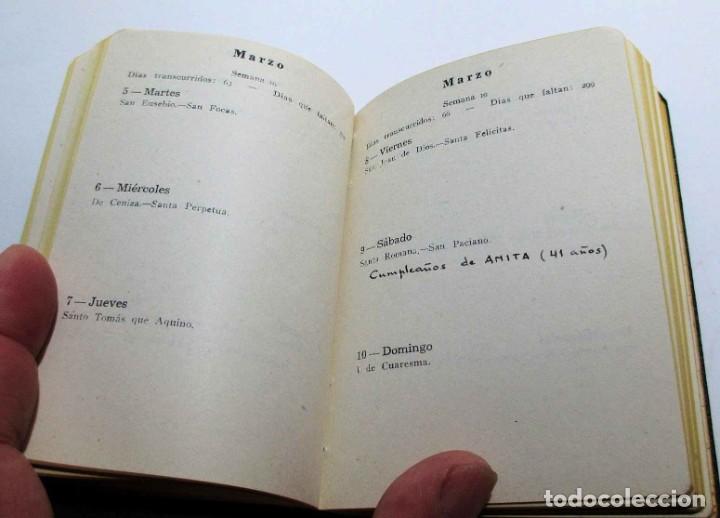 Marzo
Semana 10
Días transcurridos: 63 — Días que faltan:
5 — Martes
San Eusebio.—San Focas.
6 — Miércoles
De Ceniza.—Santa Perpetua.
7 — Jueves
Santo Tomás que Aquino.
Marzo
Semana 10
Días transcurridos: 66 — Días que faltan: 299
8 — Viernes
San Juan de Dios.—Santa Felicitas.
9 — Sábado
Santa Romana.—San Paciano.
Cumpleaños de ANITA (41 años)
10 — Domingo
I de Cuaresma.
todocoleccion.net